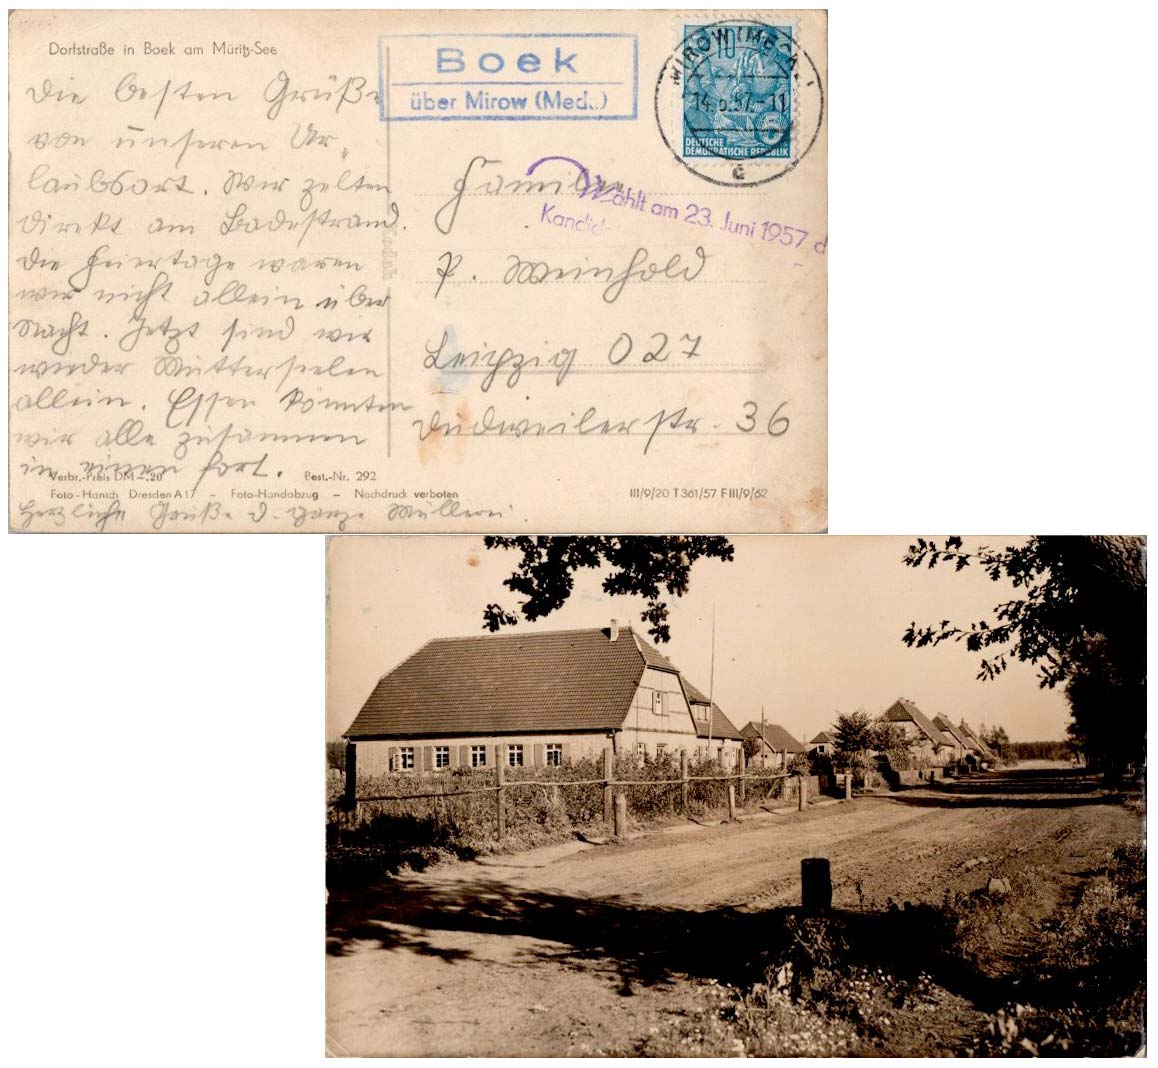 Dorfstraße in Boek am Müritz-See
Die besten Grüße
von unseren Ur„
laubsort. Wir zelten
direkt am Badestrand.
Die Feiertage waren
wir nicht allein über
Nacht. Jetzt sind wir
wieder Mutterseelen
allein. Essen könnten
wir alle zusammen
in einen fort.
Verbr.-Preis DM -.20
Best.-Nr. 292
Foto-Hanich Dresden A 17 - Foto-Handabzug - Nachdruck verboten
Herzliche Grüße d. ganze Müllerei.
Boek
über Mirow (Meckl.)
MIROW (MECKL)
14.6.57.-11
c
10
5
DEUTSCHE
DEMOKRATISCHE REPUBLIK
Wählt am 23. Juni 1957 d
Kandid
Familie
P. Weinhold
Leipzig O 27
Dudweilerstr. 36
III/9/20 T 361/57 F III/9/62
Kodak